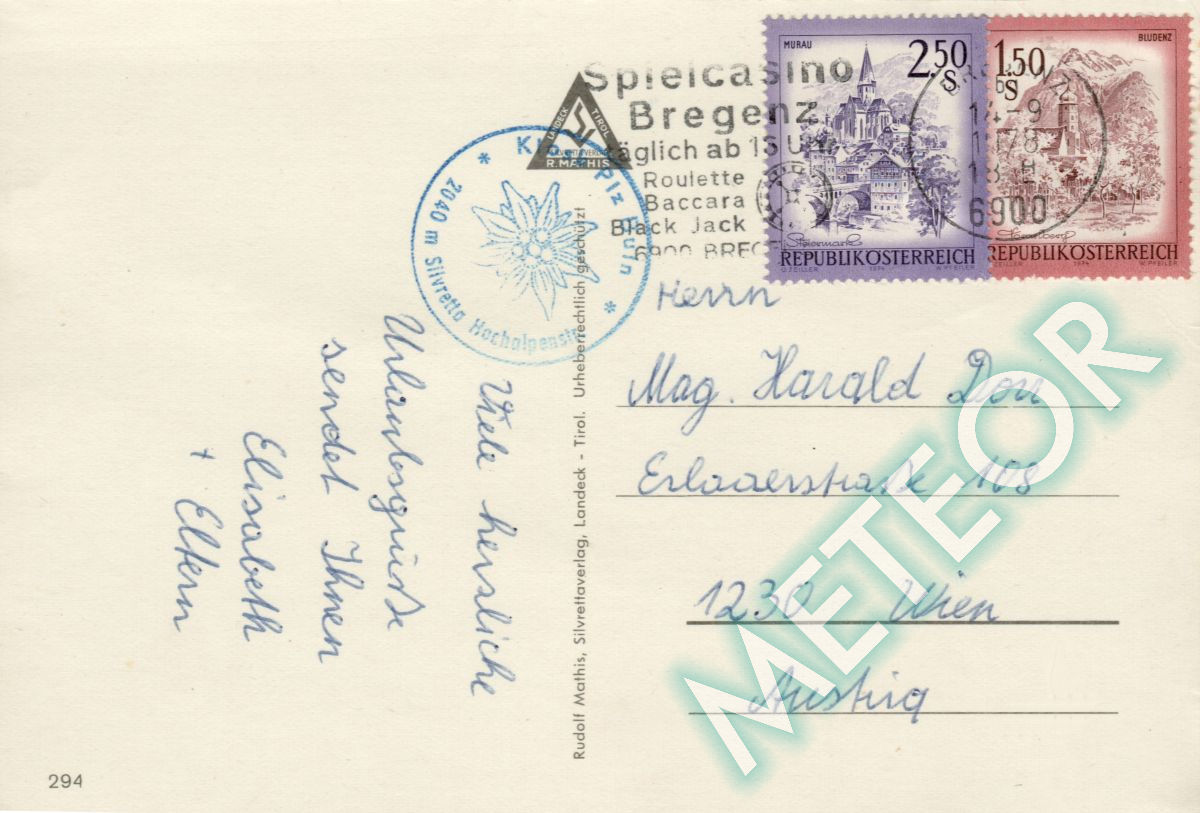 MURAU
2.50
S
Steiermark
REPUBLIK ÖSTERREICH
O. ZEILLER 1974 W. PFEILER
BLUDENZ
1.50
S
Vorarlberg
REPUBLIK ÖSTERREICH
ZEILLER 1974 W. PFEILER
Spielcasino
Bregenz
täglich ab 15 Uhr
Roulette
Baccara
Black Jack
6900 BREG
6900
LANDECK TIROL
R. MATHIS
* Piz Buin *
2040 m Silvretta Hochalpenstr
Viele herzliche
Urlaubsgrüße
sendet Ihnen
Elisabeth
+ Eltern
Rudolf Mathis, Silvrettaverlag, Landeck - Tirol. Urheberrechtlich geschützt
Herrn
Mag. Harald Don
Erlaaerstraße 108
1230 Wien
Austria
294
METEOR